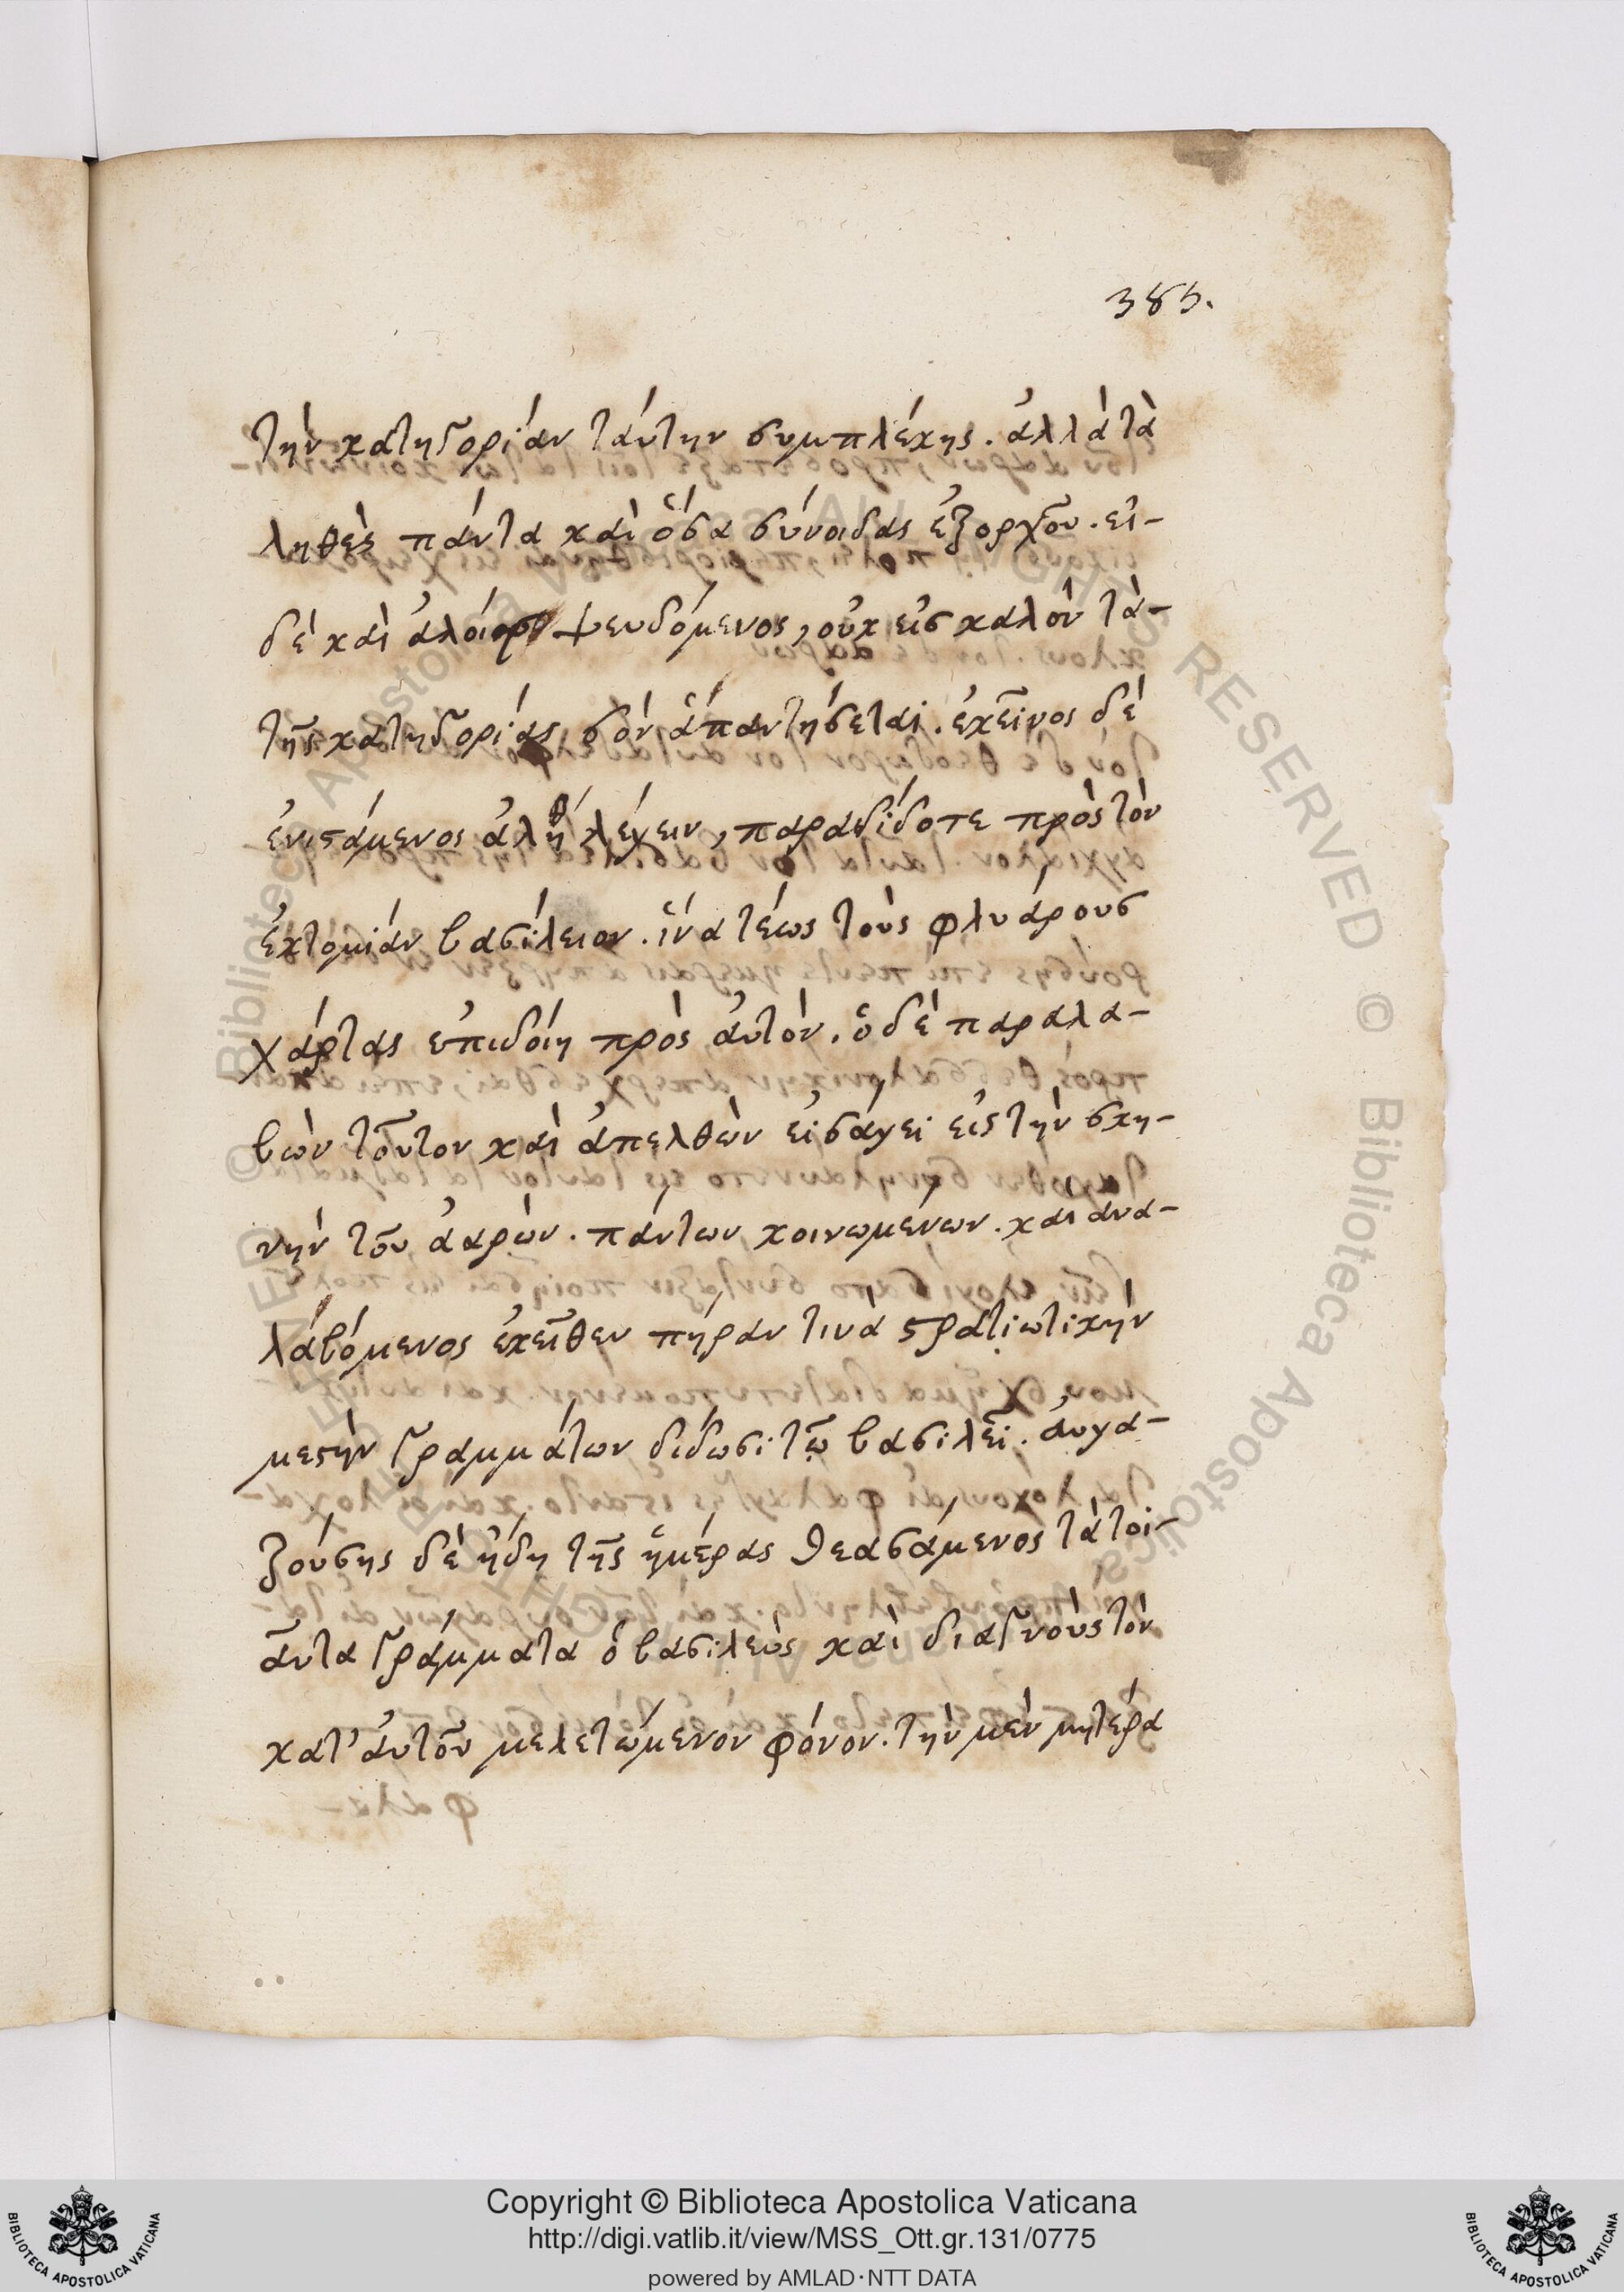 385.
τὴν κατηγορίαν ταύτην συμπλέκης. ἀλλὰ τὰ
ληθὲς πάντα καὶ ὅσα σύνοιδας ἐξορκοῦ. εἰ-
δὲ καὶ ψευδόμενος, οὐκ εἰσ καλὸν τὰ-
τῆς κατηγορίας σὸν ἀπαντήσεται. ἐκεῖνος δὲ
ἐνιστάμενος ἀληθῆ λέγειν, παραδίδοτε πρὸς τὸν
ἐκτομίαν βασίλειον. ἵνα τέως τοὺς φλυάρουσ
χάρτας ἐπιδοίη πρὸς ἀυτὸν. ὁ δὲ παραλα-
βὼν τοῦτον καὶ ἀπελθὼν εἰσάγει εἰς τὴν σκη-
νὴν τοῦ ἀαρὼν. πάντων κοινωμένων. καὶ ἀνα-
λάβόμενος ἐκεῖθεν πήραν τινὰ στρατιωτικὴν
μεστὴν γραμμάτων δίδωσι τῶ βασιλεῖ. ἀυγα-
ζούσης δὲ ἤδη τῆς ἡμέρας θεασάμενος τὰ τοι-
αῦτα γράμματα ὁ βασιλεὺς καὶ διαγνοὺς τὸν
κατ' ἀυτοῦ μελετώμενον φόνον. τὴν μὲν μητέρα
Copyright © Biblioteca Apostolica Vaticana
http://digi.vatlib.it/view/MSS_Ott.gr.131/0775
powered by AMLAD·NTT DATA
BIBLIOTECA APOSTOLICA VATICANA
BIBLIOTECA APOSTOLICA VATICANA